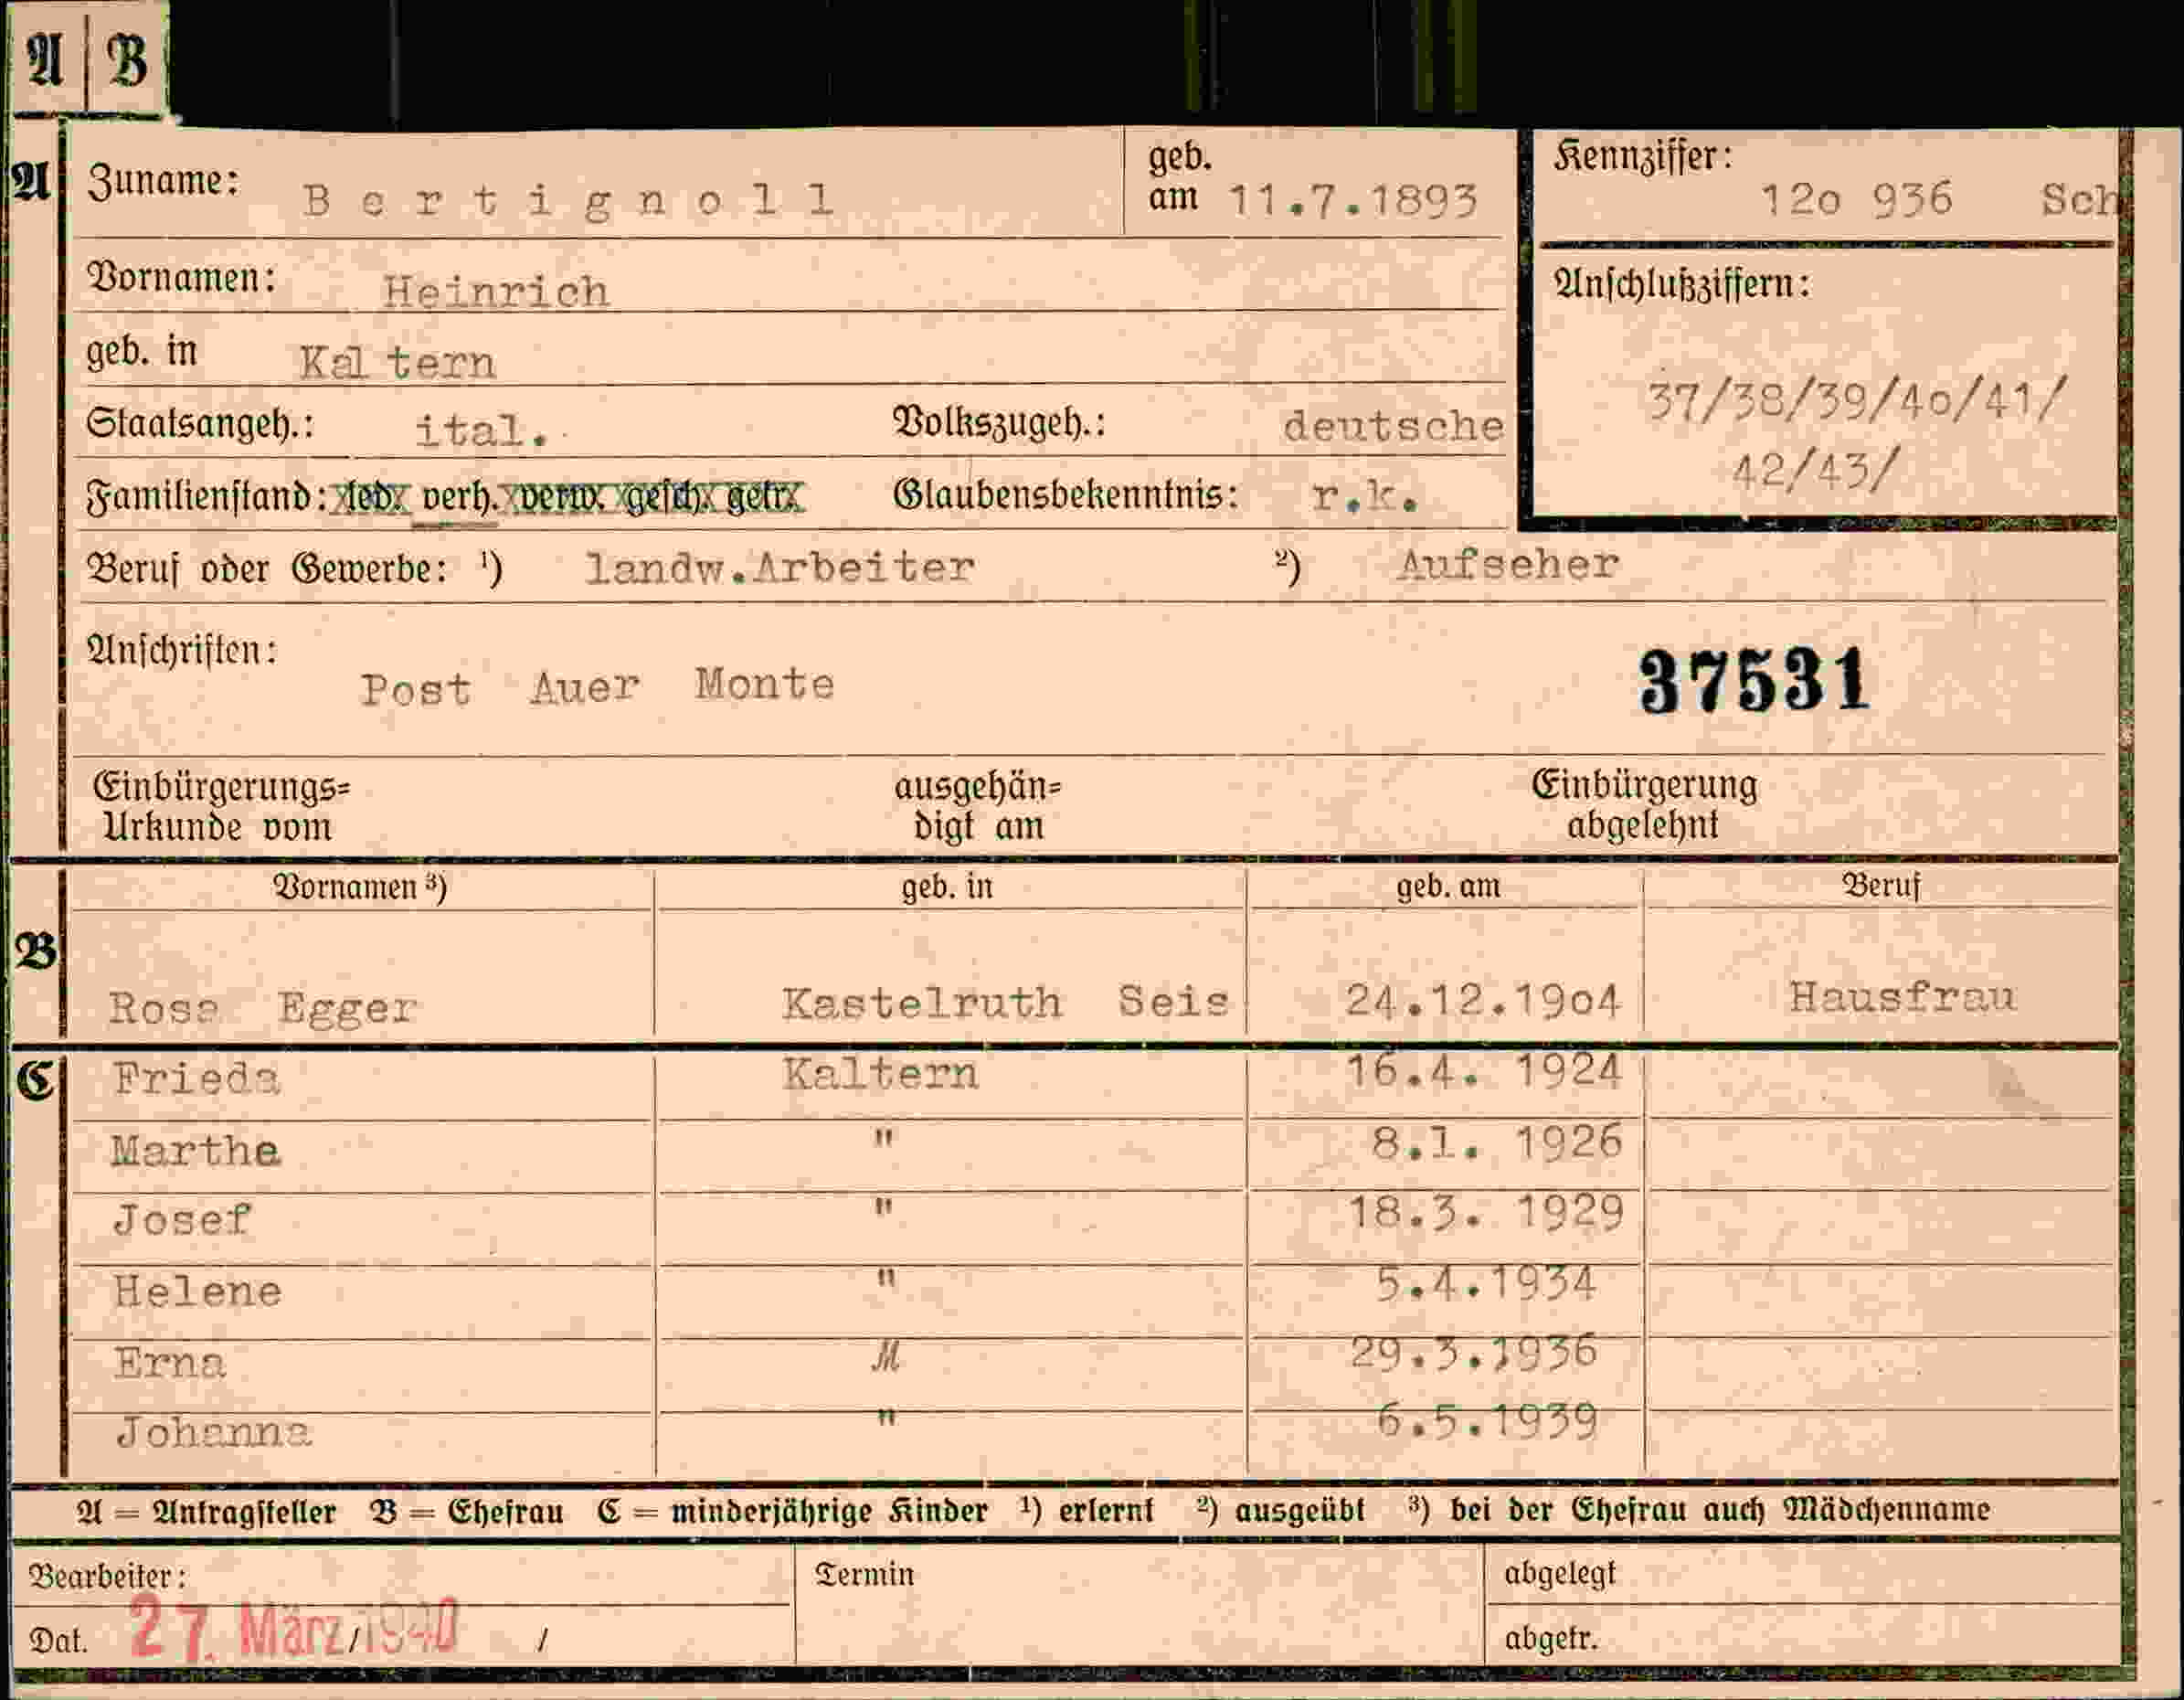 A B
A Zuname: Bertignoll geb. am 11.7.1893 Kennziffer: 12o 936 Sch
Vornamen: Heinrich Anschlußziffern:
geb. in Kaltern 37/38/39/4o/41/
Staatsangeh.: ital. Volkszugeh.: deutsche 42/43/
Familienstand: led. verh. verw. gesch. getr. Glaubensbekenntnis: r.k.
Beruf oder Gewerbe: ¹) landw.Arbeiter ²) Aufseher
Anschriften: Post Auer Monte 37531
Einbürgerungs= ausgehän= Einbürgerung
Urkunde vom digt am abgelehnt
Vornamen ³) geb. in geb. am Beruf
B Rosa Egger Kastelruth Seis 24.12.19o4 Hausfrau
C Frieda Kaltern 16.4. 1924
Martha " 8.1. 1926
Josef " 18.3. 1929
Helene " 5.4.1934
Erna " 29.3.1936
Johanna " 6.5.1939
A = Antragsteller B = Ehefrau C = minderjährige Kinder ¹) erlernt ²) ausgeübt ³) bei der Ehefrau auch Mädchenname
Bearbeiter: Termin abgelegt
Dat. 27. März/1940 / abgetr.